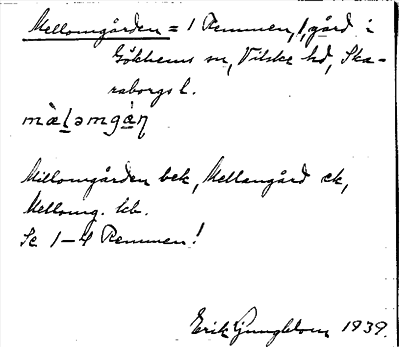 Mellomgården = 1 Remmen, 1, gård i
Gökhems sn, Vilske hd, Ska-
raborgs l.
mæ̀ḷəmgàṇ
Millomgården bek, Mellangård ek,
Mellomg. kb.
Se 1-4 Remmen!
Erik Ljungblom 1939.